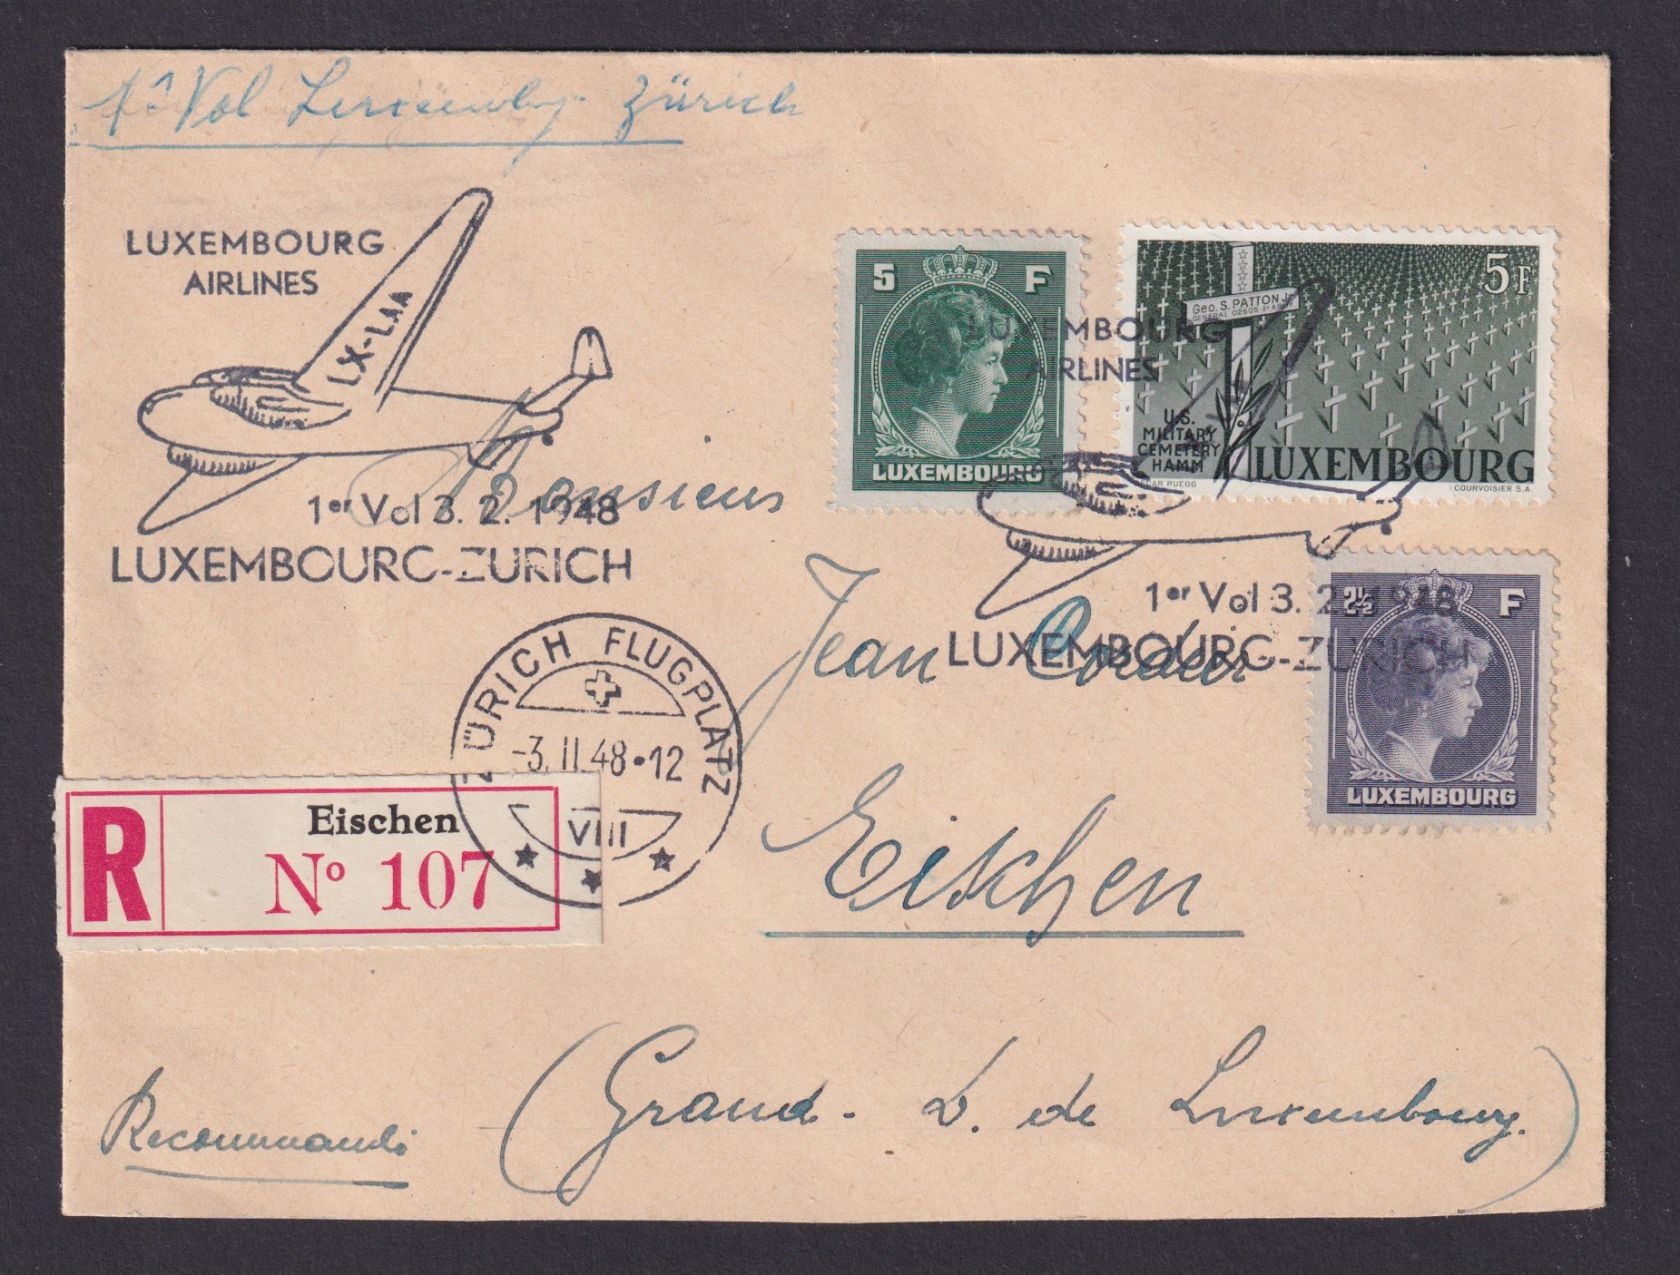 1er Vol Luxembg. Zürich
LUXEMBOURG
AIRLINES
LX-LAA
1er Vol 3. 2. 1948
LUXEMBOURG-ZURICH
5 F
LUXEMBOURG
5F
Geo. S. PATTON Jr
GENERAL 02605 3d ARMY
U.S.
MILITARY
CEMETERY
HAMM
LUXEMBOURG
OSCAR RUEGG COURVOISIER S.A.
LUXEMBOURG
AIRLINES
1er Vol 3. 2. 1948
LUXEMBOURG-ZURICH
2½ F
LUXEMBOURG
Monsieur
Jean Cordier
Eischen
(Grand. D. de Luxembourg.)
ZÜRICH FLUGPLATZ
-3. II. 48•12
VIII
R Eischen
No 107
Recommandé